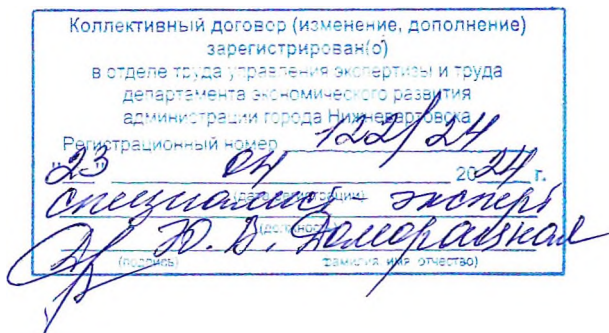 Коллективный договор (изменение, дополнение)
зарегистрирован(о)
в отделе труда управления экспертизы и труда
департамента экономического развития
администрации города Нижневартовска
Регистрационный номер 122/24
"23" 04 2024 г.
специалист эксперт
(должность)
Ю. В.
(подпись) фамилия, имя, отчество)